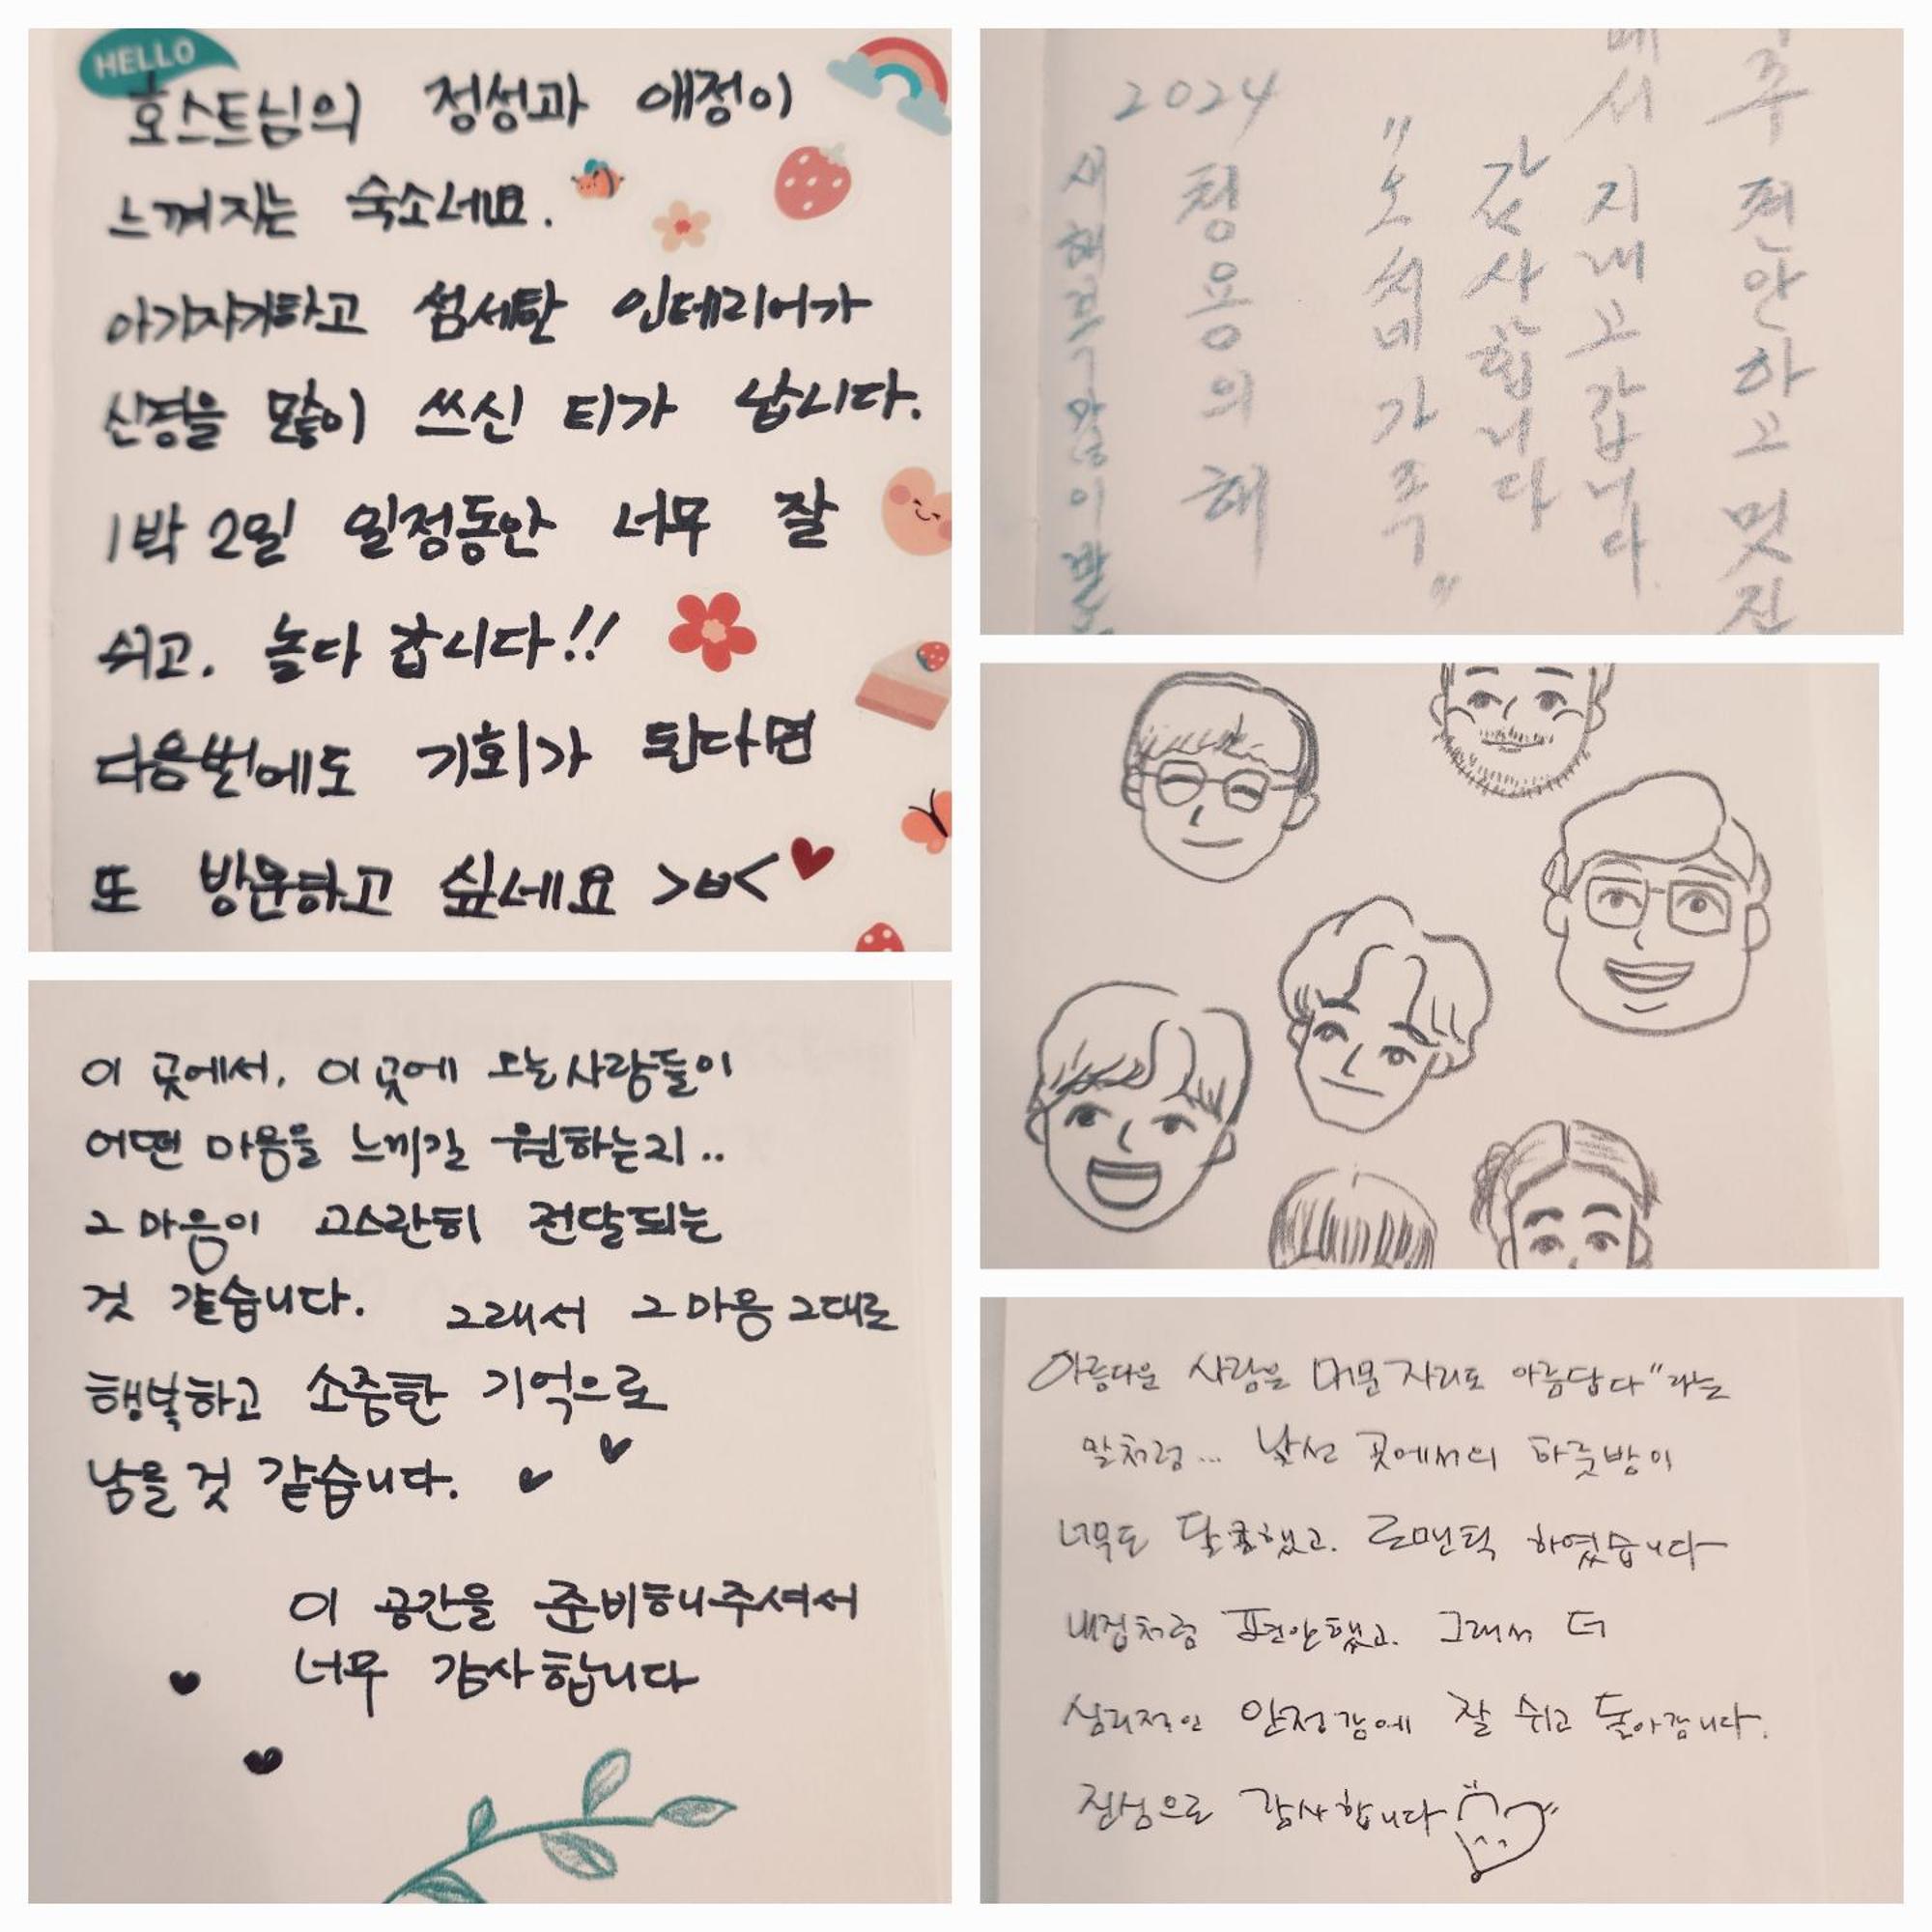 HELLO
호스트님의 정성과 애정이
느껴지는 숙소네요.
아기자기하고 섬세한 인테리어가
신경을 많이 쓰신 티가 납니다.
1박 2일 일정동안 너무 잘
쉬고, 놀다 갑니다!!
다음번에도 기회가 된다면
또 방문하고 싶네요 >ㅂ<
아주 편안하고 멋진
에서 지내고 갑니다.
감사합니다
"오처네 가족"
2024
청룡의 해
이 곳에서, 이 곳에 오는 사람들이
어떤 마음을 느끼길 원하는지..
그 마음이 고스란히 전달되는
것 같습니다. 그래서 그 마음 그대로
행복하고 소중한 기억으로
남을 것 같습니다.
이 공간을 준비해주셔서
너무 감사합니다
아름다운 사람은 머문 자리도 아름답다"라는
말처럼... 낯선 곳에서의 하룻밤이
너무도 달콤했고. 로맨틱 하였습니다
내집처럼 편안했고. 그래서 더
심리적인 안정감에 잘 쉬고 돌아갑니다.
진심으로 감사합니다